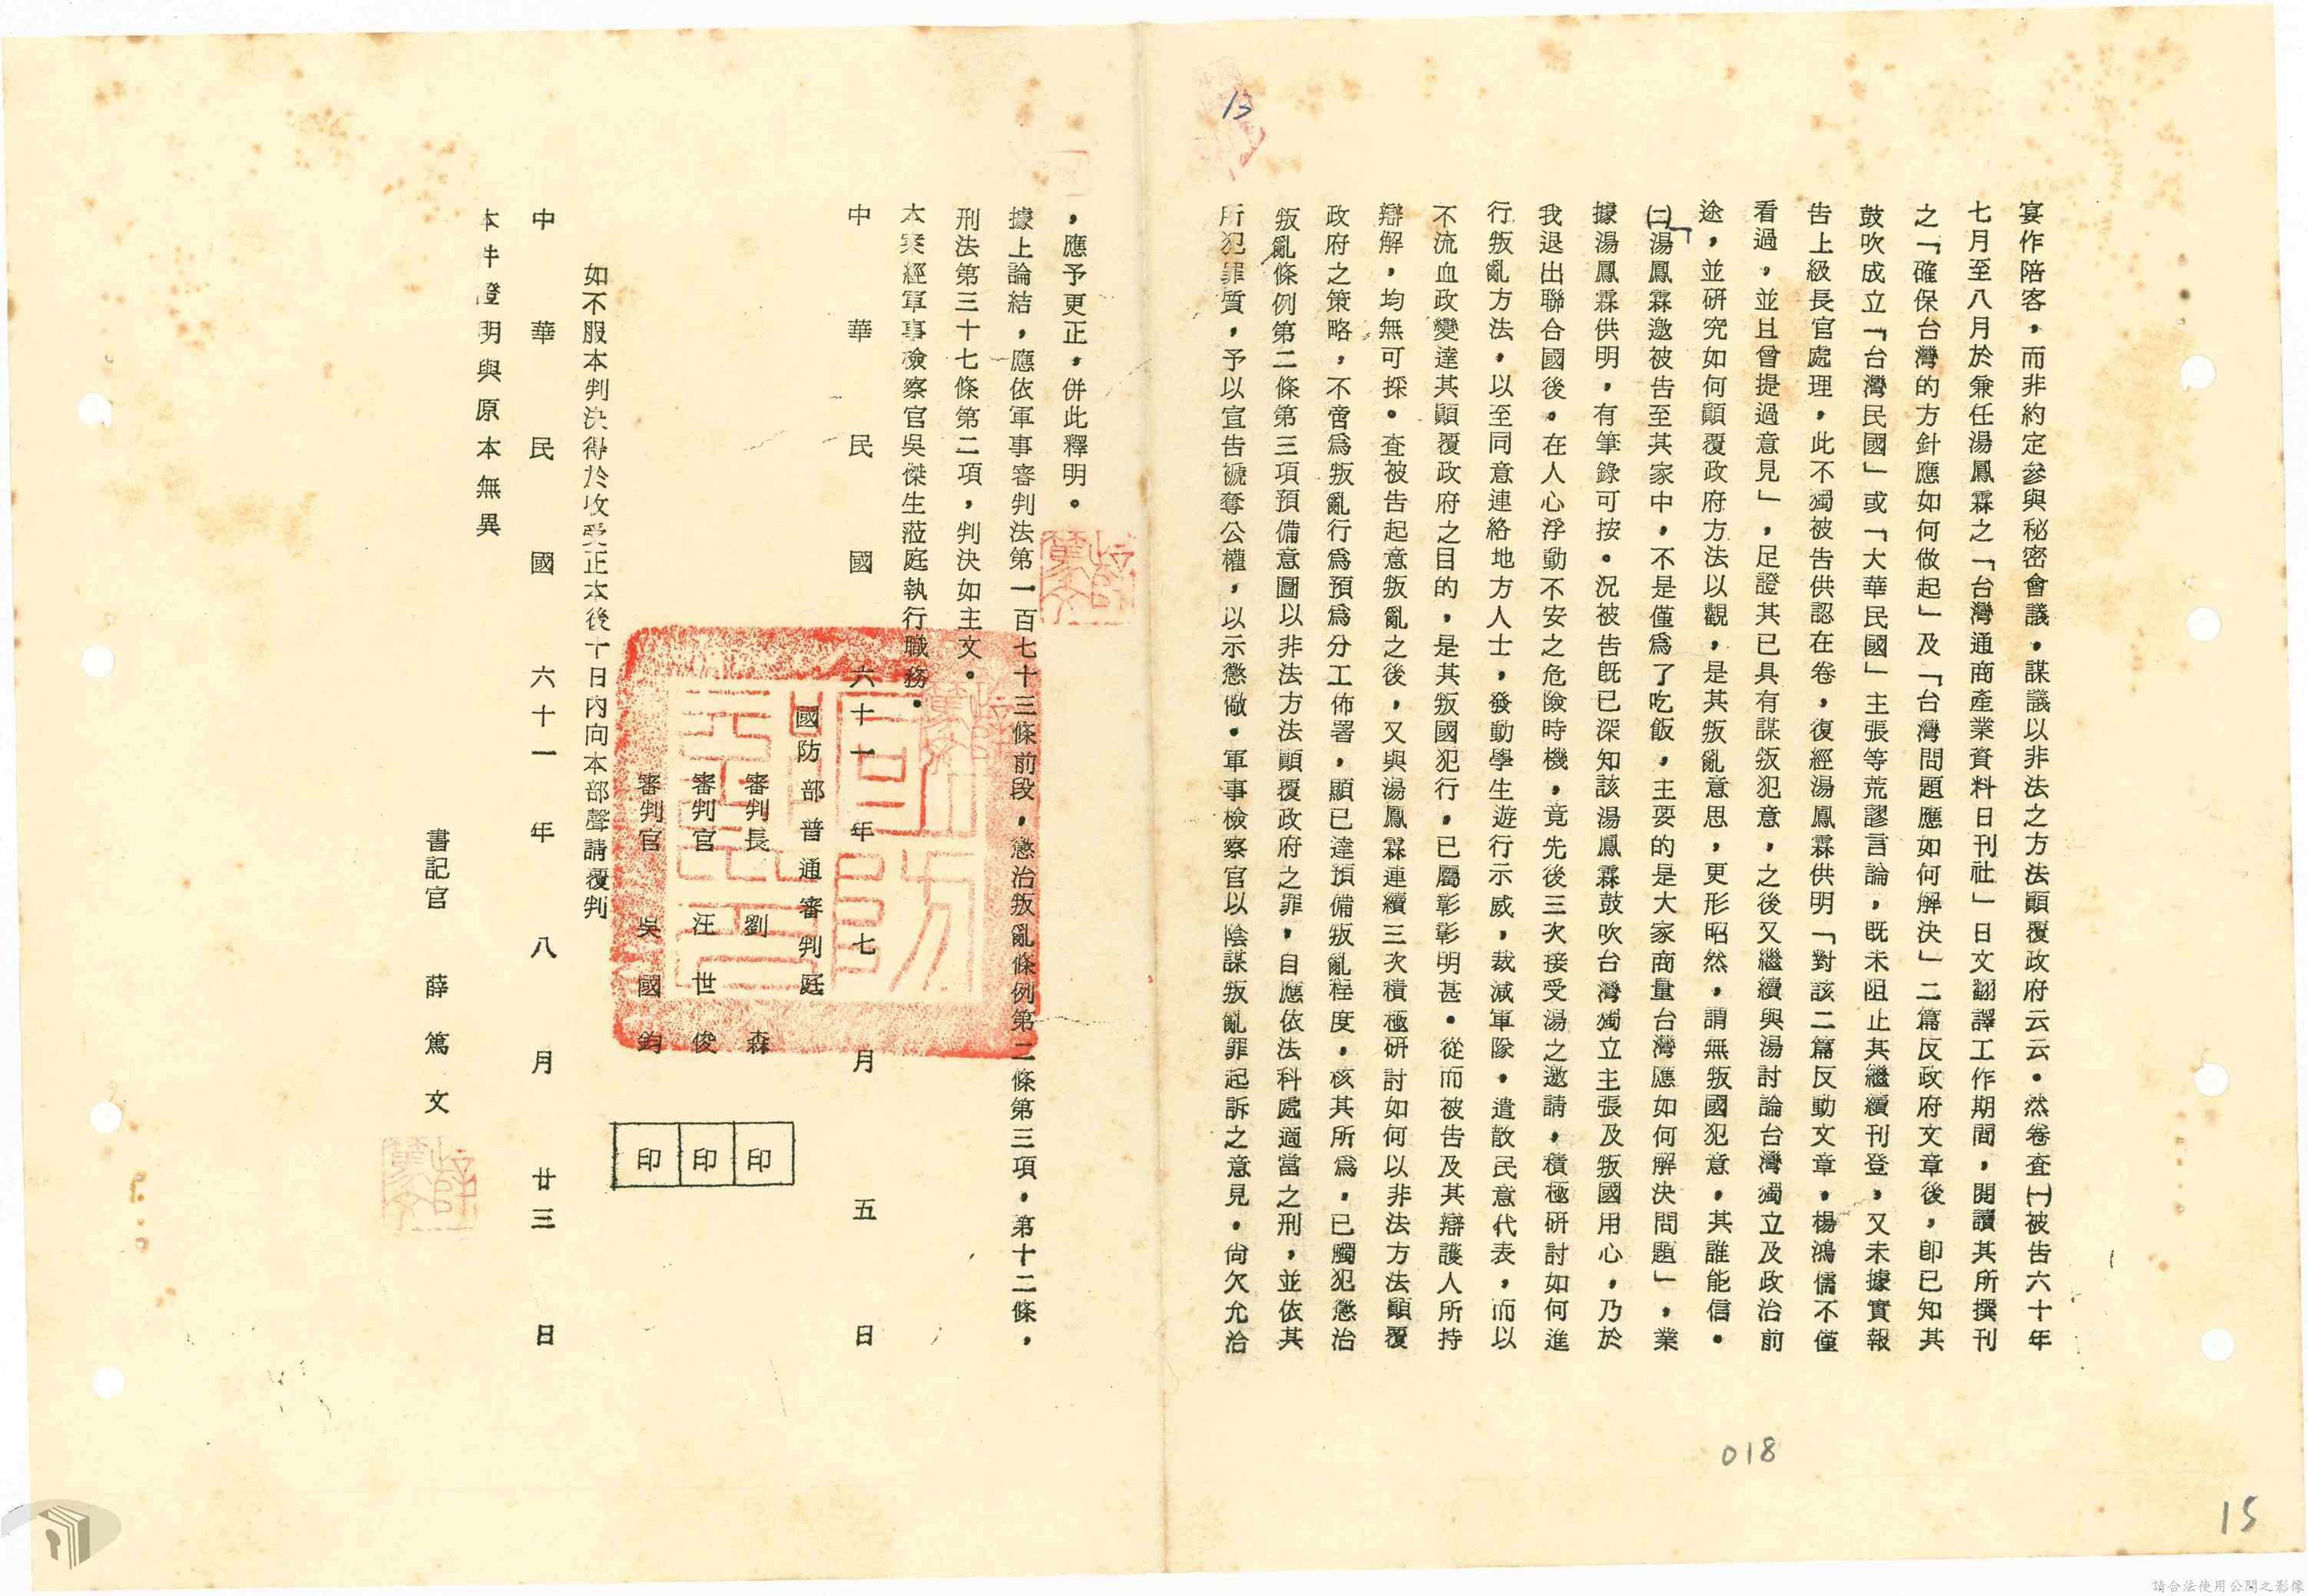 宴作陪客，而非約定參與秘密會議，謀議以非法之方法顚覆政府云云。然卷查㈠被告六十年
七月至八月於兼任湯鳳霖之「台灣通商產業資料日刊社」日文翻譯工作期間，閱讀其所撰刊
之「確保台灣的方針應如何做起」及「台灣問題應如何解決」二篇反政府文章後，卽已知其
鼓吹成立「台灣民國」或「大華民國」主張等荒謬言論，旣未阻止其繼續刊登，又未據實報
告上級長官處理，此不獨被告供認在卷，復經湯鳳霖供明「對該二篇反動文章，楊鴻儒不僅
看過，並且曾提過意見」，足證其已具有謀叛犯意，之後又繼續與湯討論台灣獨立及政治前
途，並研究如何顚覆政府方法以觀，是其叛亂意思，更形昭然，謂無叛國犯意，其誰能信。
㈡「湯鳳霖邀被告至其家中，不是僅爲了吃飯，主要的是大家商量台灣應如何解決問題」，業
據湯鳳霖供明，有筆錄可按。況被告旣已深知該湯鳳霖鼓吹台灣獨立主張及叛國用心，乃於
我退出聯合國後。在人心浮動不安之危險時機，竟先後三次接受湯之邀請，積極研討如何進
行叛亂方法，以至同意連絡地方人士，發動學生遊行示威，裁減軍隊，遣散民意代表，而以
不流血政變達其顚覆政府之目的，是其叛國犯行，已屬彰彰明甚。從而被告及其辯護人所持
辯解，均無可採。查被告起意叛亂之後，又與湯鳳霖連續三次積極研討如何以非法方法顚覆
政府之策略，不啻爲叛亂行爲預爲分工佈署，顯已達預備叛亂程度，核其所爲，已觸犯懲治
叛亂條例第二條第三項預備意圖以非法方法顚覆政府之罪，自應依法科處適當之刑，並依其
所犯罪質，予以宣告褫奪公權，以示懲儆。軍事檢察官以陰謀叛亂罪起訴之意見，尙欠允洽
，應予更正，併此釋明。
據上論結，應依軍事審判法第一百七十三條前段，懲治叛亂條例第二條第三項，第十二條，
刑法第三十七條第二項，判決如主文。
本案經軍事檢察官吳傑生蒞庭執行職務。
中華民國六十一年七月五日
國防部普通審判庭
審判長 劉森 印
審判官 汪世俊 印
審判官 吳國鈞 印
如不服本判決得於收受正本後十日內向本部聲請覆判
中華民國六十一年八月廿三日
本件證明與原本無異
書記官 薛篤文
薛篤文
13
018
15
請合法使用公開之影像